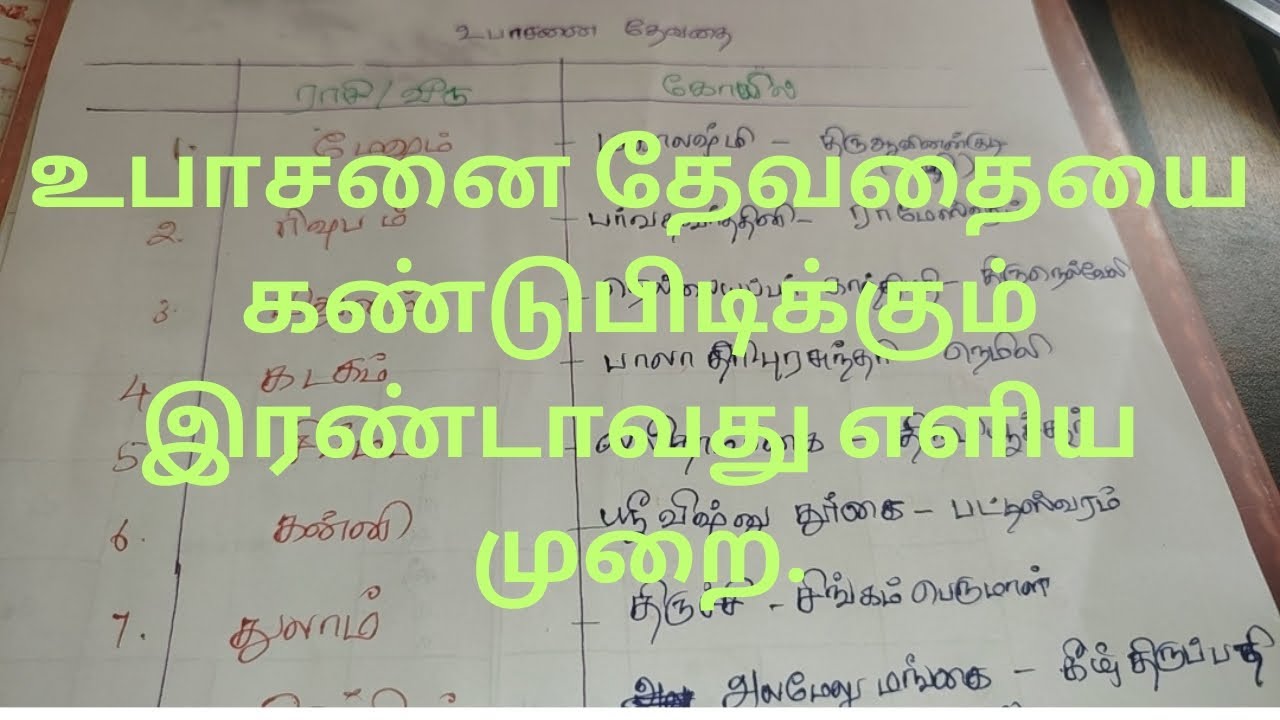 உபாசனை தேவதை
ராசி/வீடு கோயில்
1. மேஷம் - - திருஆவினன்குடி
உபாசனை தேவதையை
2. ரிஷபம் - பர்வதவர்த்தினி - ராமேஸ்வரம்
கண்டுபிடிக்கும்
3. - திருநெல்வேலி
4 கடகம் - பாலா திரிபுரசுந்தரி - நெமிலி
இரண்டாவது எளிய
5
6. கன்னி - ஸ்ரீ விஷ்ணு துர்கை - பட்டீஸ்வரம்
முறை.
7. துலாம் - - சிங்கம் பெருமாள்
அலமேலு மங்கை - கீழ் திருப்பதி